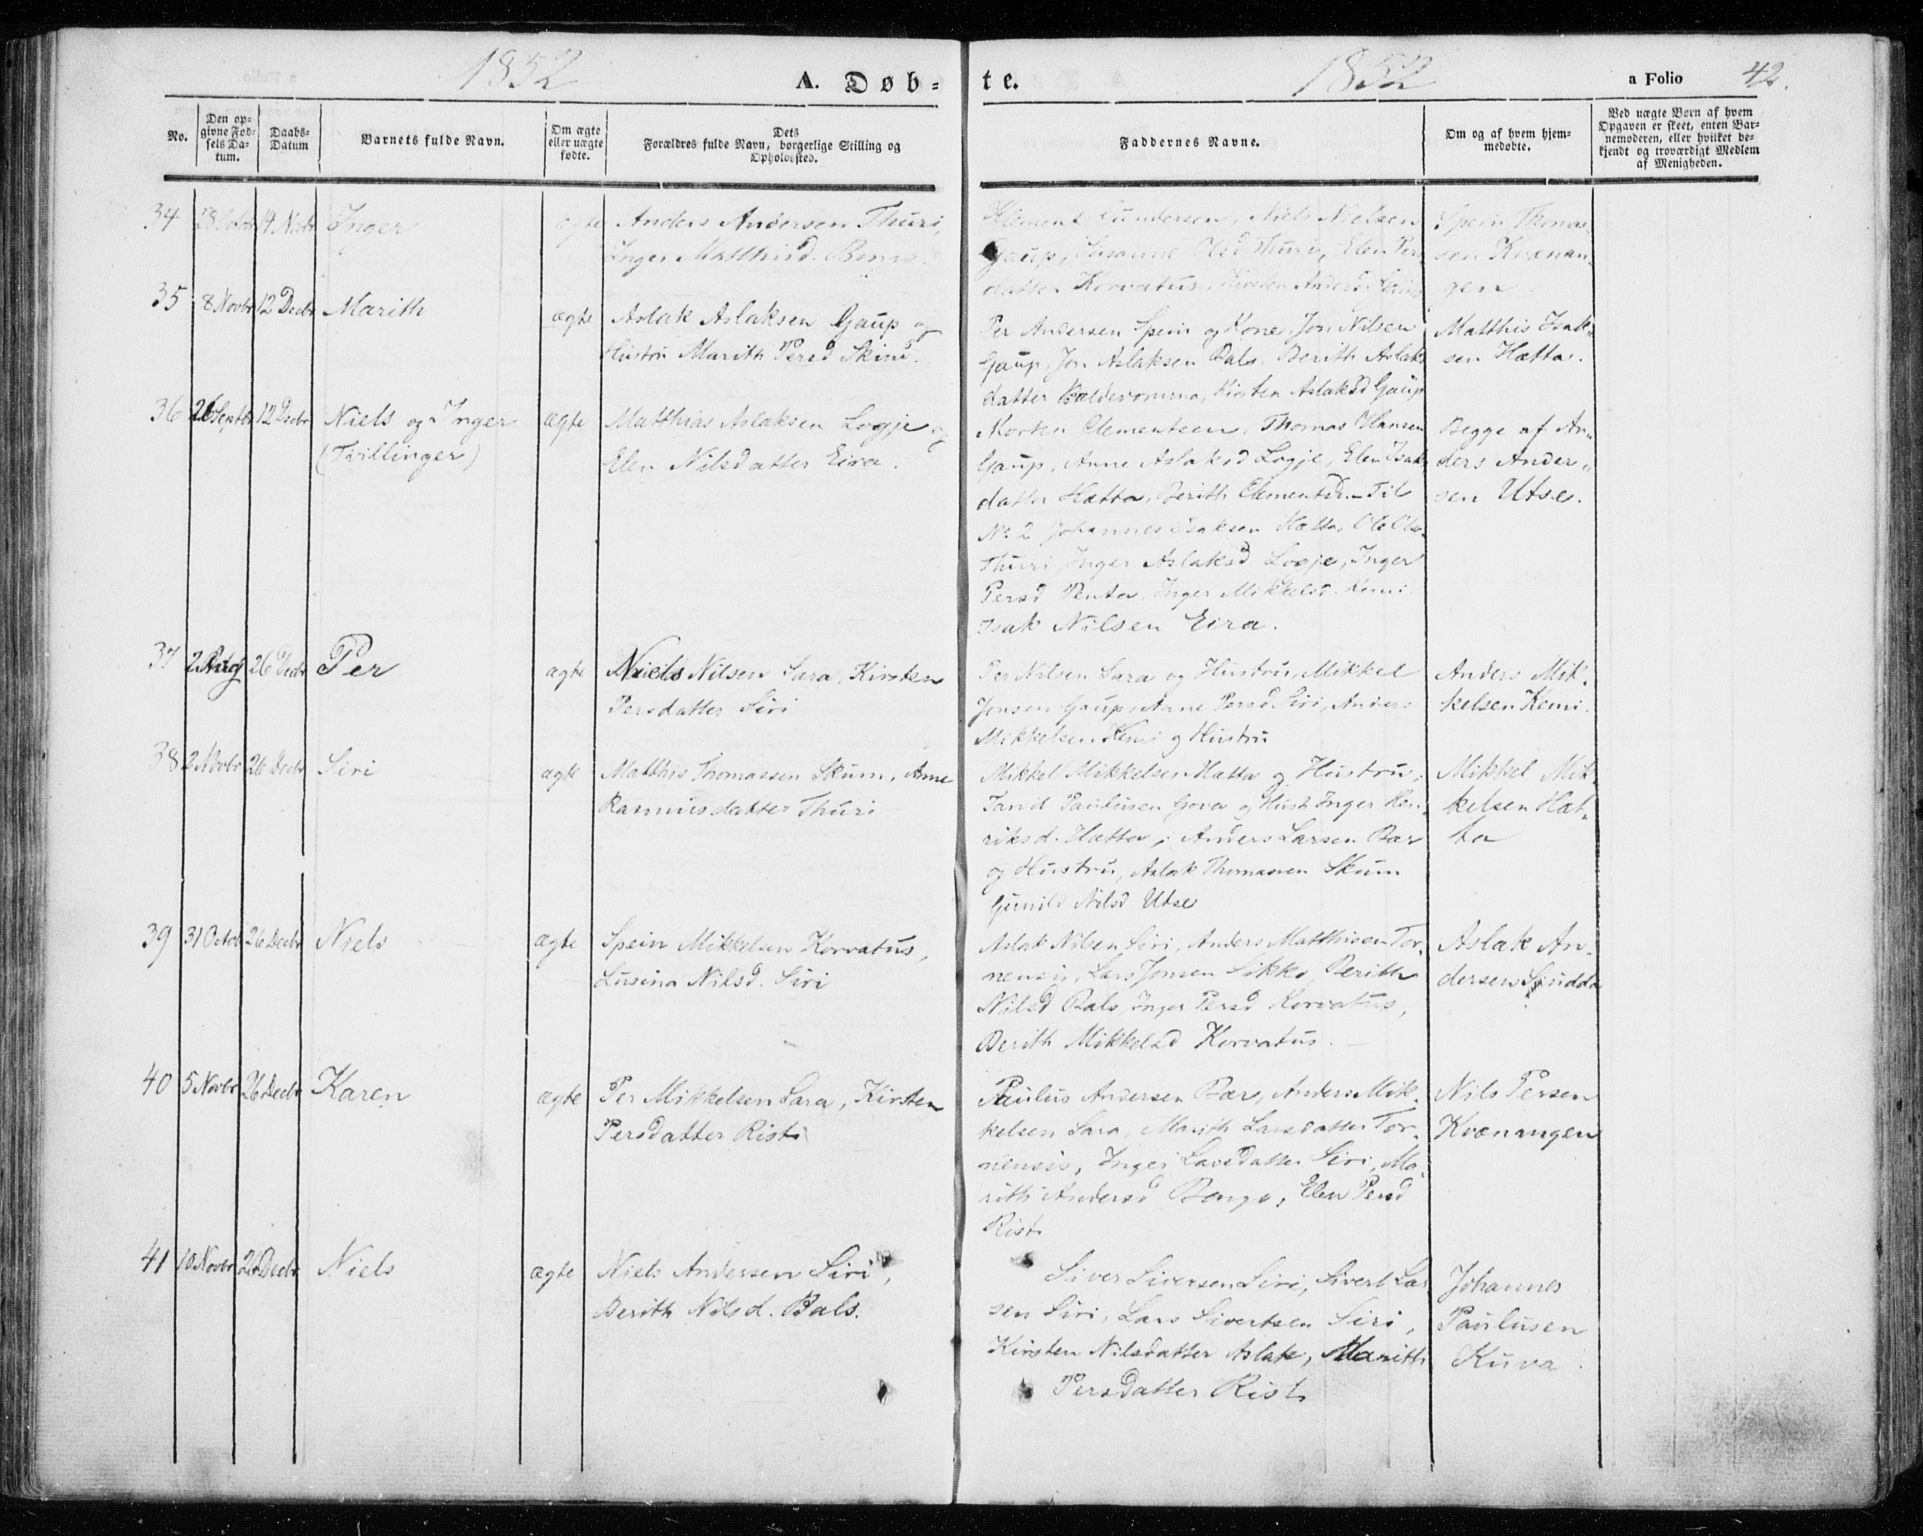 1852 A. Døb=
te. 1852 a Folio 42.
No.
Den op-
givne Fød-
sels Da-
tum.
Daabs-
Datum
Barnets fulde Navn.
Om ægte
eller uægte
fødte.
Dets
Forældres fulde Navn, borgerlige Stilling og
Opholdssted.
Faddernes Navne.
Om og af hvem hjem-
medøbte.
Ved uægte Børn af hvem
Opgaven er skeet, enten Bar-
nemoderen, eller hvilket be-
kjendt og troværdigt Medlem
af Menigheden.
34 28 Octob 14 Novbr Inger ægte
Anders Andersen Thuri,
Inger Matthisd. Bongo.
Klement Gundersen, Niels Nielsen
Gaup, Susanne Olsd Thuri, Elen Per
datter Korvatus, Kirsten Andersd Gaup
Spein Thomas-
sen Kvænan-
gen
35 8 Novbr 12 Decbr Marith ægte
Aslak Aslaksen Gaup og
Hustru Marith Persd Skum.
Per Andersen Spein og Kone, Jon Nilsen
Gaup, Jon Aslaksen Bals, Berith Aslak
datter, Kirsten Aslaksd Gaup
Matthis Isak-
sen Hætta.
36 26 Septbr 12 Decbr Niels og Inger
(Tvillinger)
ægte
Matthias Aslaksen Logje og
Elen Nilsdatter Eira.
Morten Clementsen, Thomas Hansen
Gaup, Anne Aslaksd Logje, Elen Isak
datter Hætta, Berith Clementsd. - Til
No 2 Johannes Isaksen Hætta, Ole Ols
Thuri, Inger Aslaksd Logje, Inger
Persd Penta, Inger Mikkelsd. Kemi
Isak Nilsen Eira.
Begge af An-
ders Ander-
sen Utse.
37 2 Aug 26 Decbr Per ægte
Niels Nilsen Sara, Kirsten
Persdatter Siri
Per Nilsen Sara og Hustru, Mikkel
Jonsen Gaup, Anne Persd. Siri, Anders
Mikkelsen Kemi og Hustru
Anders Mik-
kelsen Kemi.
38 2 Novbr 26 Decbr Siri ægte
Matthis Thomassen Skum, Anne
Rasmusdatter Thuri
Mikkel Mikkelsen Hætta og Hustru,
Tarid Paulusen Gova og Hust Inger Hen
riksd. Hætta, Anders Larsen Bær
og Hustru, Aslak Thomassen Skum
Gunild Nilsd Utse
Mikkel Mik-
kelsen Hæt-
ta
39 31 Octob 26 Decbr Niels ægte
Spein Mikkelsen Korvatus,
Lusina Nilsd. Siri
Aslak Nilsen Siri, Anders Matthisen Tor-
nensis, Lars Jonsen Sikko, Berith
Nilsd Bals, Inger Persd Korvatus,
Berith Mikkelsd Korvatus.
Aslak An-
dersen
40 5 Novbr 26 Decbr Karen ægte
Per Mikkelsen Sara, Kirsten
Persdatter Risti
Paulus Andersen Bær, Anders Mik-
kelsen Sara, Marith Larsdatter Tor-
nensis, Inger Larsdatter Siri, Ma-
rith Andersd Bongo, Elen Persd
Risti
Nils Persen
Kvænangen
41 10 Novbr 26 Decbr Niels ægte
Niels Andersen Siri,
Berith Nilsd. Bals.
Siver Siversen Siri, Sivert Lar
sen Siri, Lars Sivertsen Siri,
Kirsten Nilsdatter Aslak, Marith
Persdatter Risti
Johannes
Paulusen
Kuva.